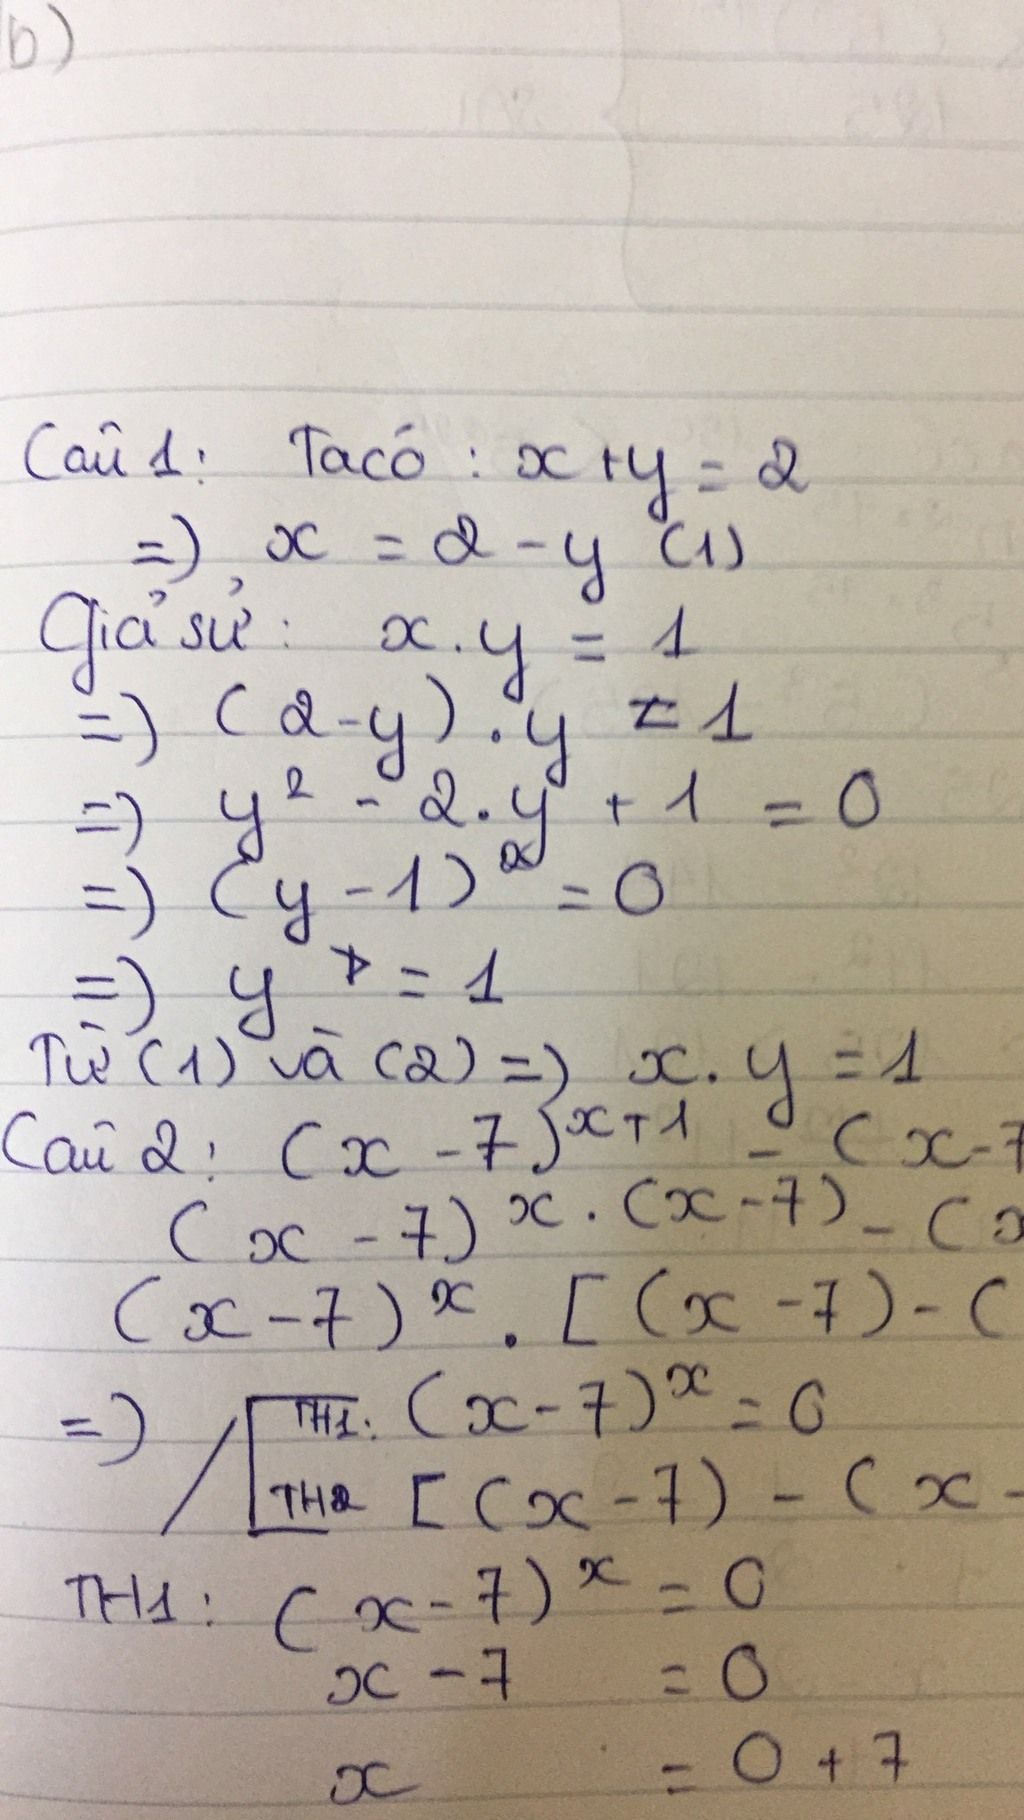 b)
Câu 1: Ta có : x + y = 2
=) x = 2 - y (1)
Giả sử : x . y = 1
=) (2 - y) . y = 1
=) y² - 2 . y + 1 = 0
=) (y - 1)² = 0
=) y = 1
Từ (1) và (2) =) x . y = 1
Câu 2: (x - 7)^x+1 - (x - 7
(x - 7)^x . (x - 7) - (x
(x - 7)^x . [ (x - 7) - (
=) TH1: (x - 7)^x = 0
TH2 [ (x - 7) - (x -
TH1 : (x - 7)^x = 0
x - 7 = 0
x = 0 + 7